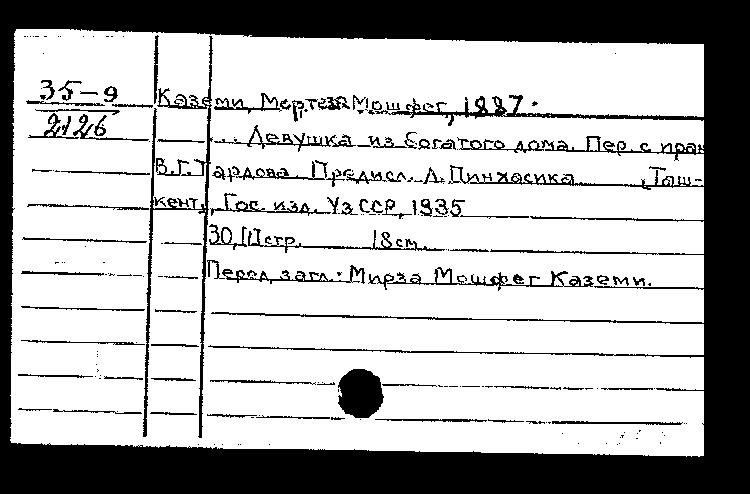 35-9
2126
Каземи, Мортеза Мошфег, 1887.
... Девушка из богатого дома. Пер. с иран
В.Г. Тардова. Предисл. А. Пинхасика , Таш-
кент, Гос. изд. УзССР, 1935
стр. 18см.
Перед загл.: Мирза Мошфег Каземи.